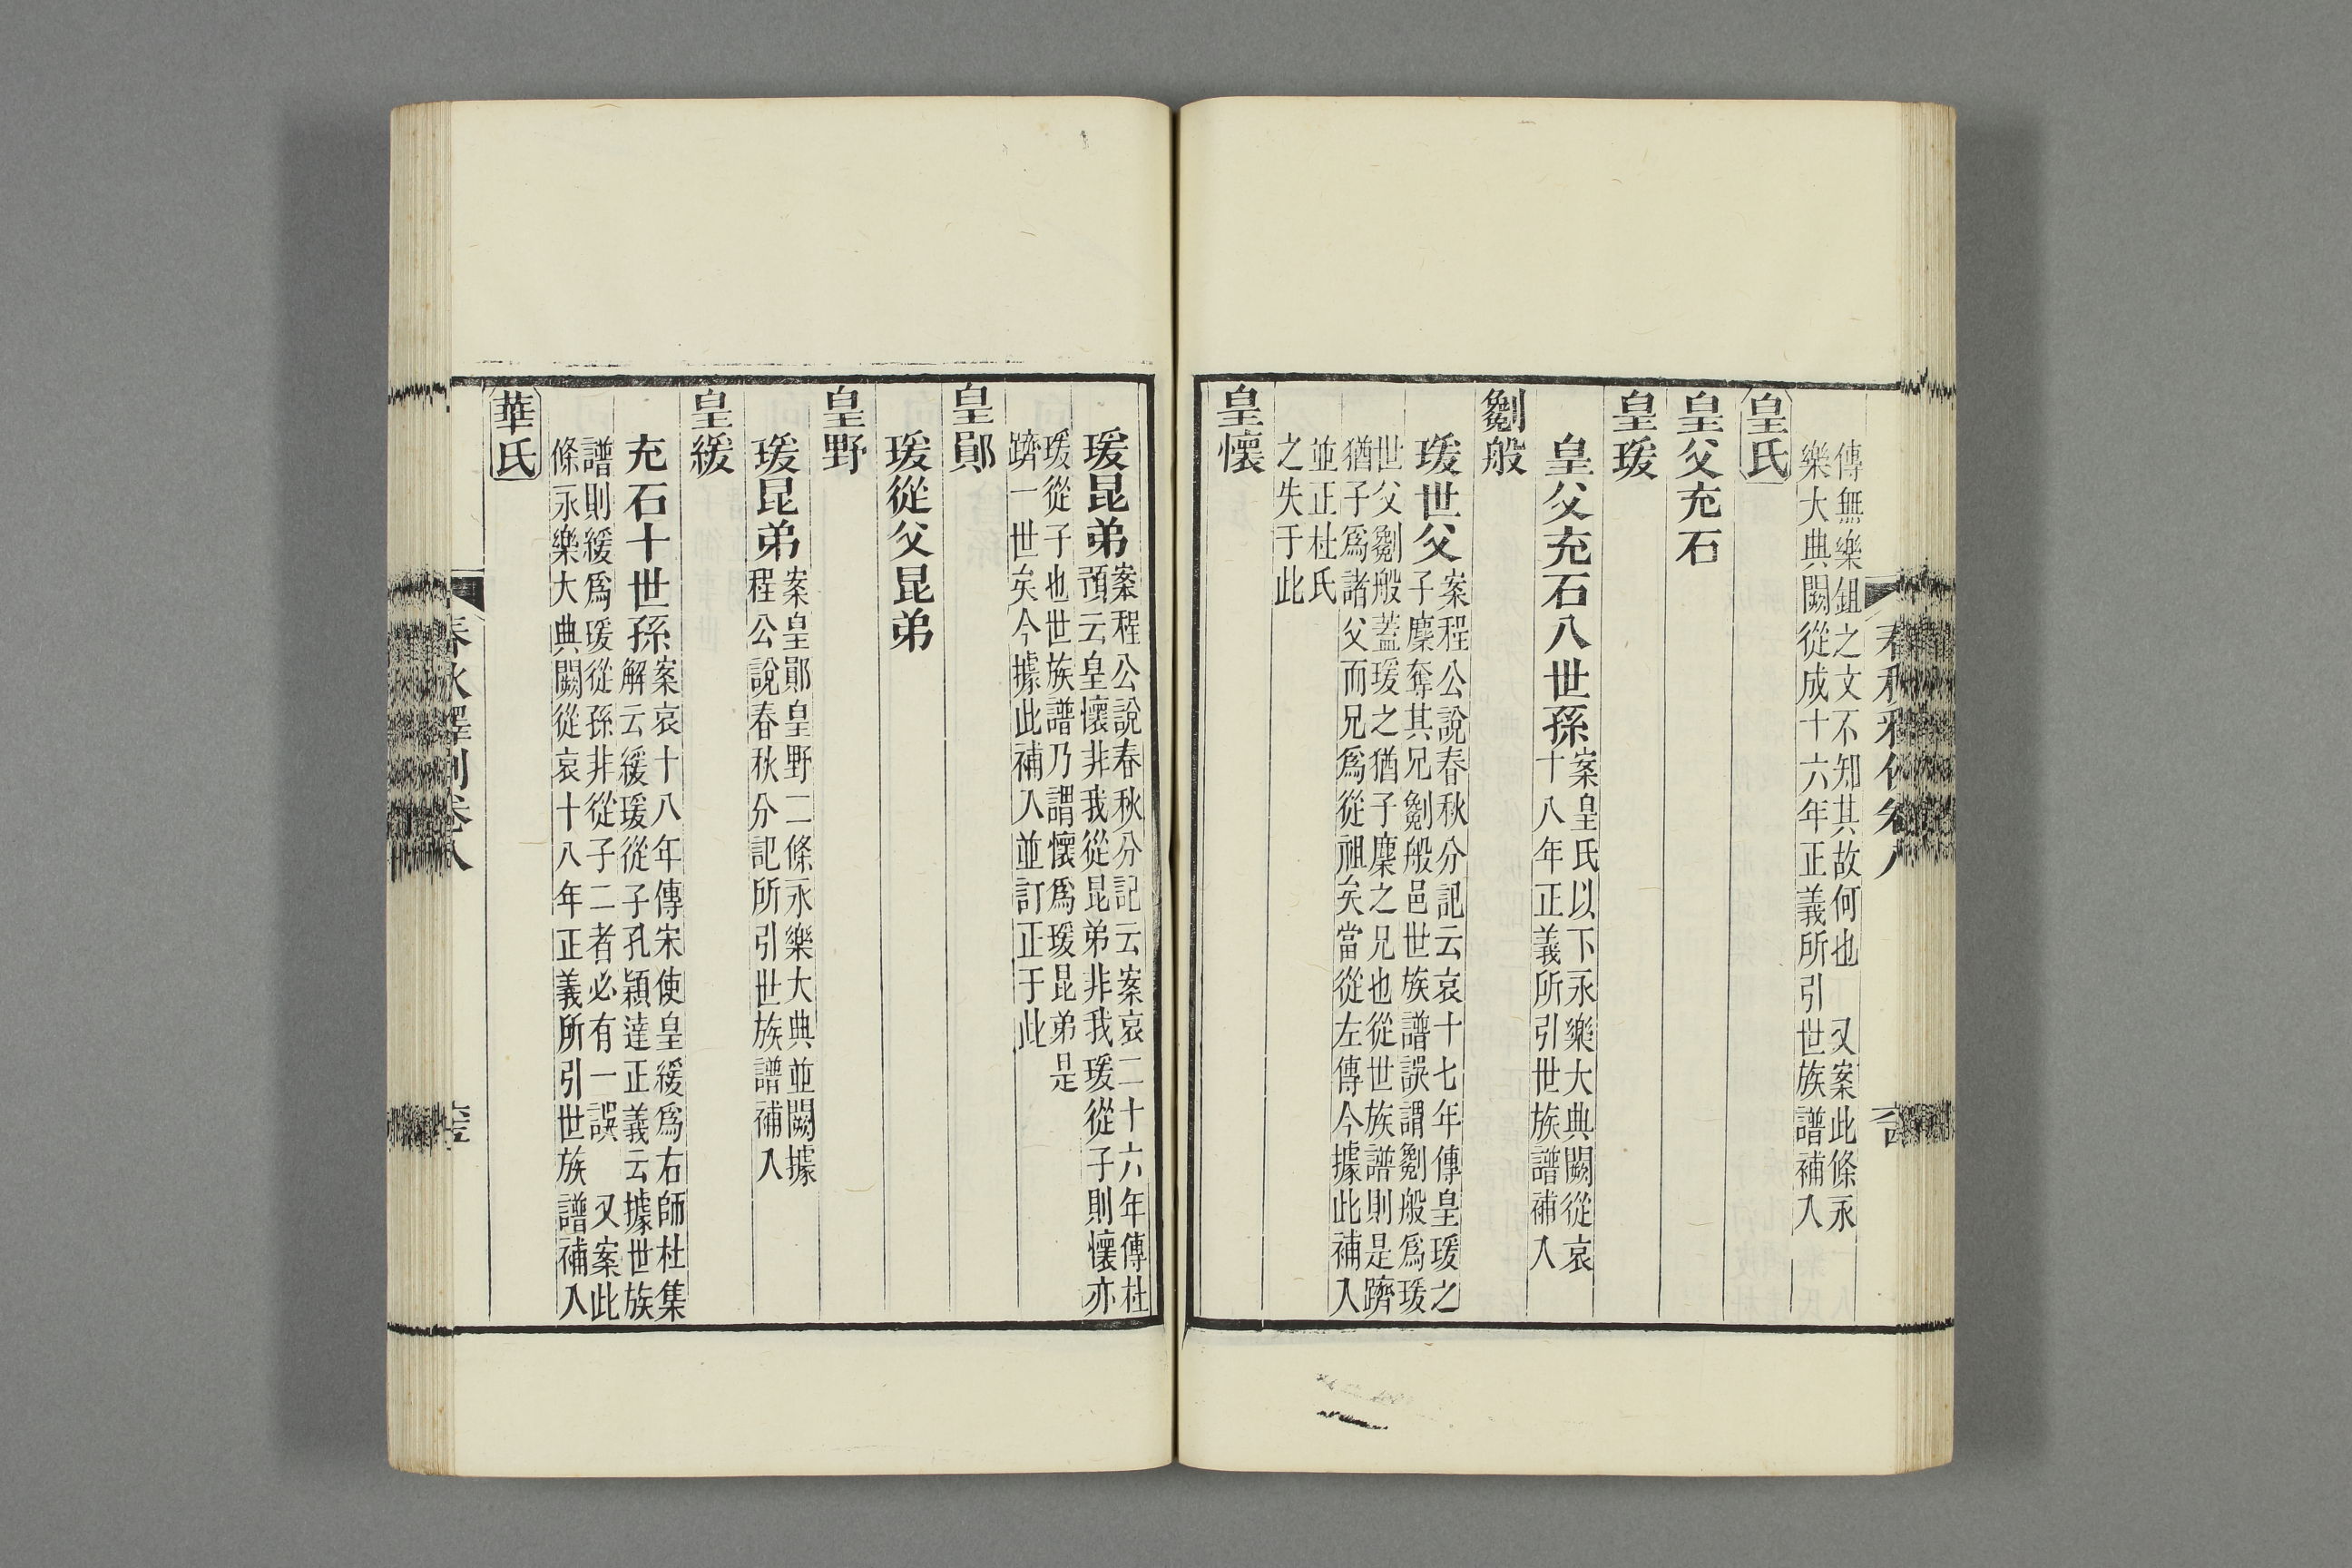 傳無樂鉏之文不知其故何也　又案此條永
樂大典闕從成十六年正義所引世族譜補入
皇氏
皇父充石
皇瑗
皇父充石八世孫
案皇氏以下永樂大典闕從哀
十八年正義所引世族譜補入
劖般
瑗世父
案程公說春秋分記云哀十七年傳皇瑗之
子麇奪其兄劖般邑世族譜誤謂劖般爲瑗
世父劖般蓋瑗之猶子麇之兄也從世族譜則是躋
猶子爲諸父而兄爲從祖矣當從左傳今據此補入
並正杜氏
之失于此
皇懷
瑗昆弟
案程公說春秋分記云案哀二十六年傳杜
預云皇懷非我從昆弟非我瑗從子則懷亦
瑗從子也世族譜乃謂懷爲瑗昆弟是
躋一世矣今據此補入並訂正于此
皇鄖
瑗從父昆弟
皇野
瑗昆弟
案皇鄖皇野二條永樂大典並闕據
程公說春秋分記所引世族譜補入
皇緩
充石十世孫
案哀十八年傳宋使皇緩爲右師杜集
解云緩瑗從子孔穎達正義云據世族
譜則緩爲瑗從孫非從子二者必有一誤　又案此
條永樂大典闕從哀十八年正義所引世族譜補入
華氏
春秋釋例卷八